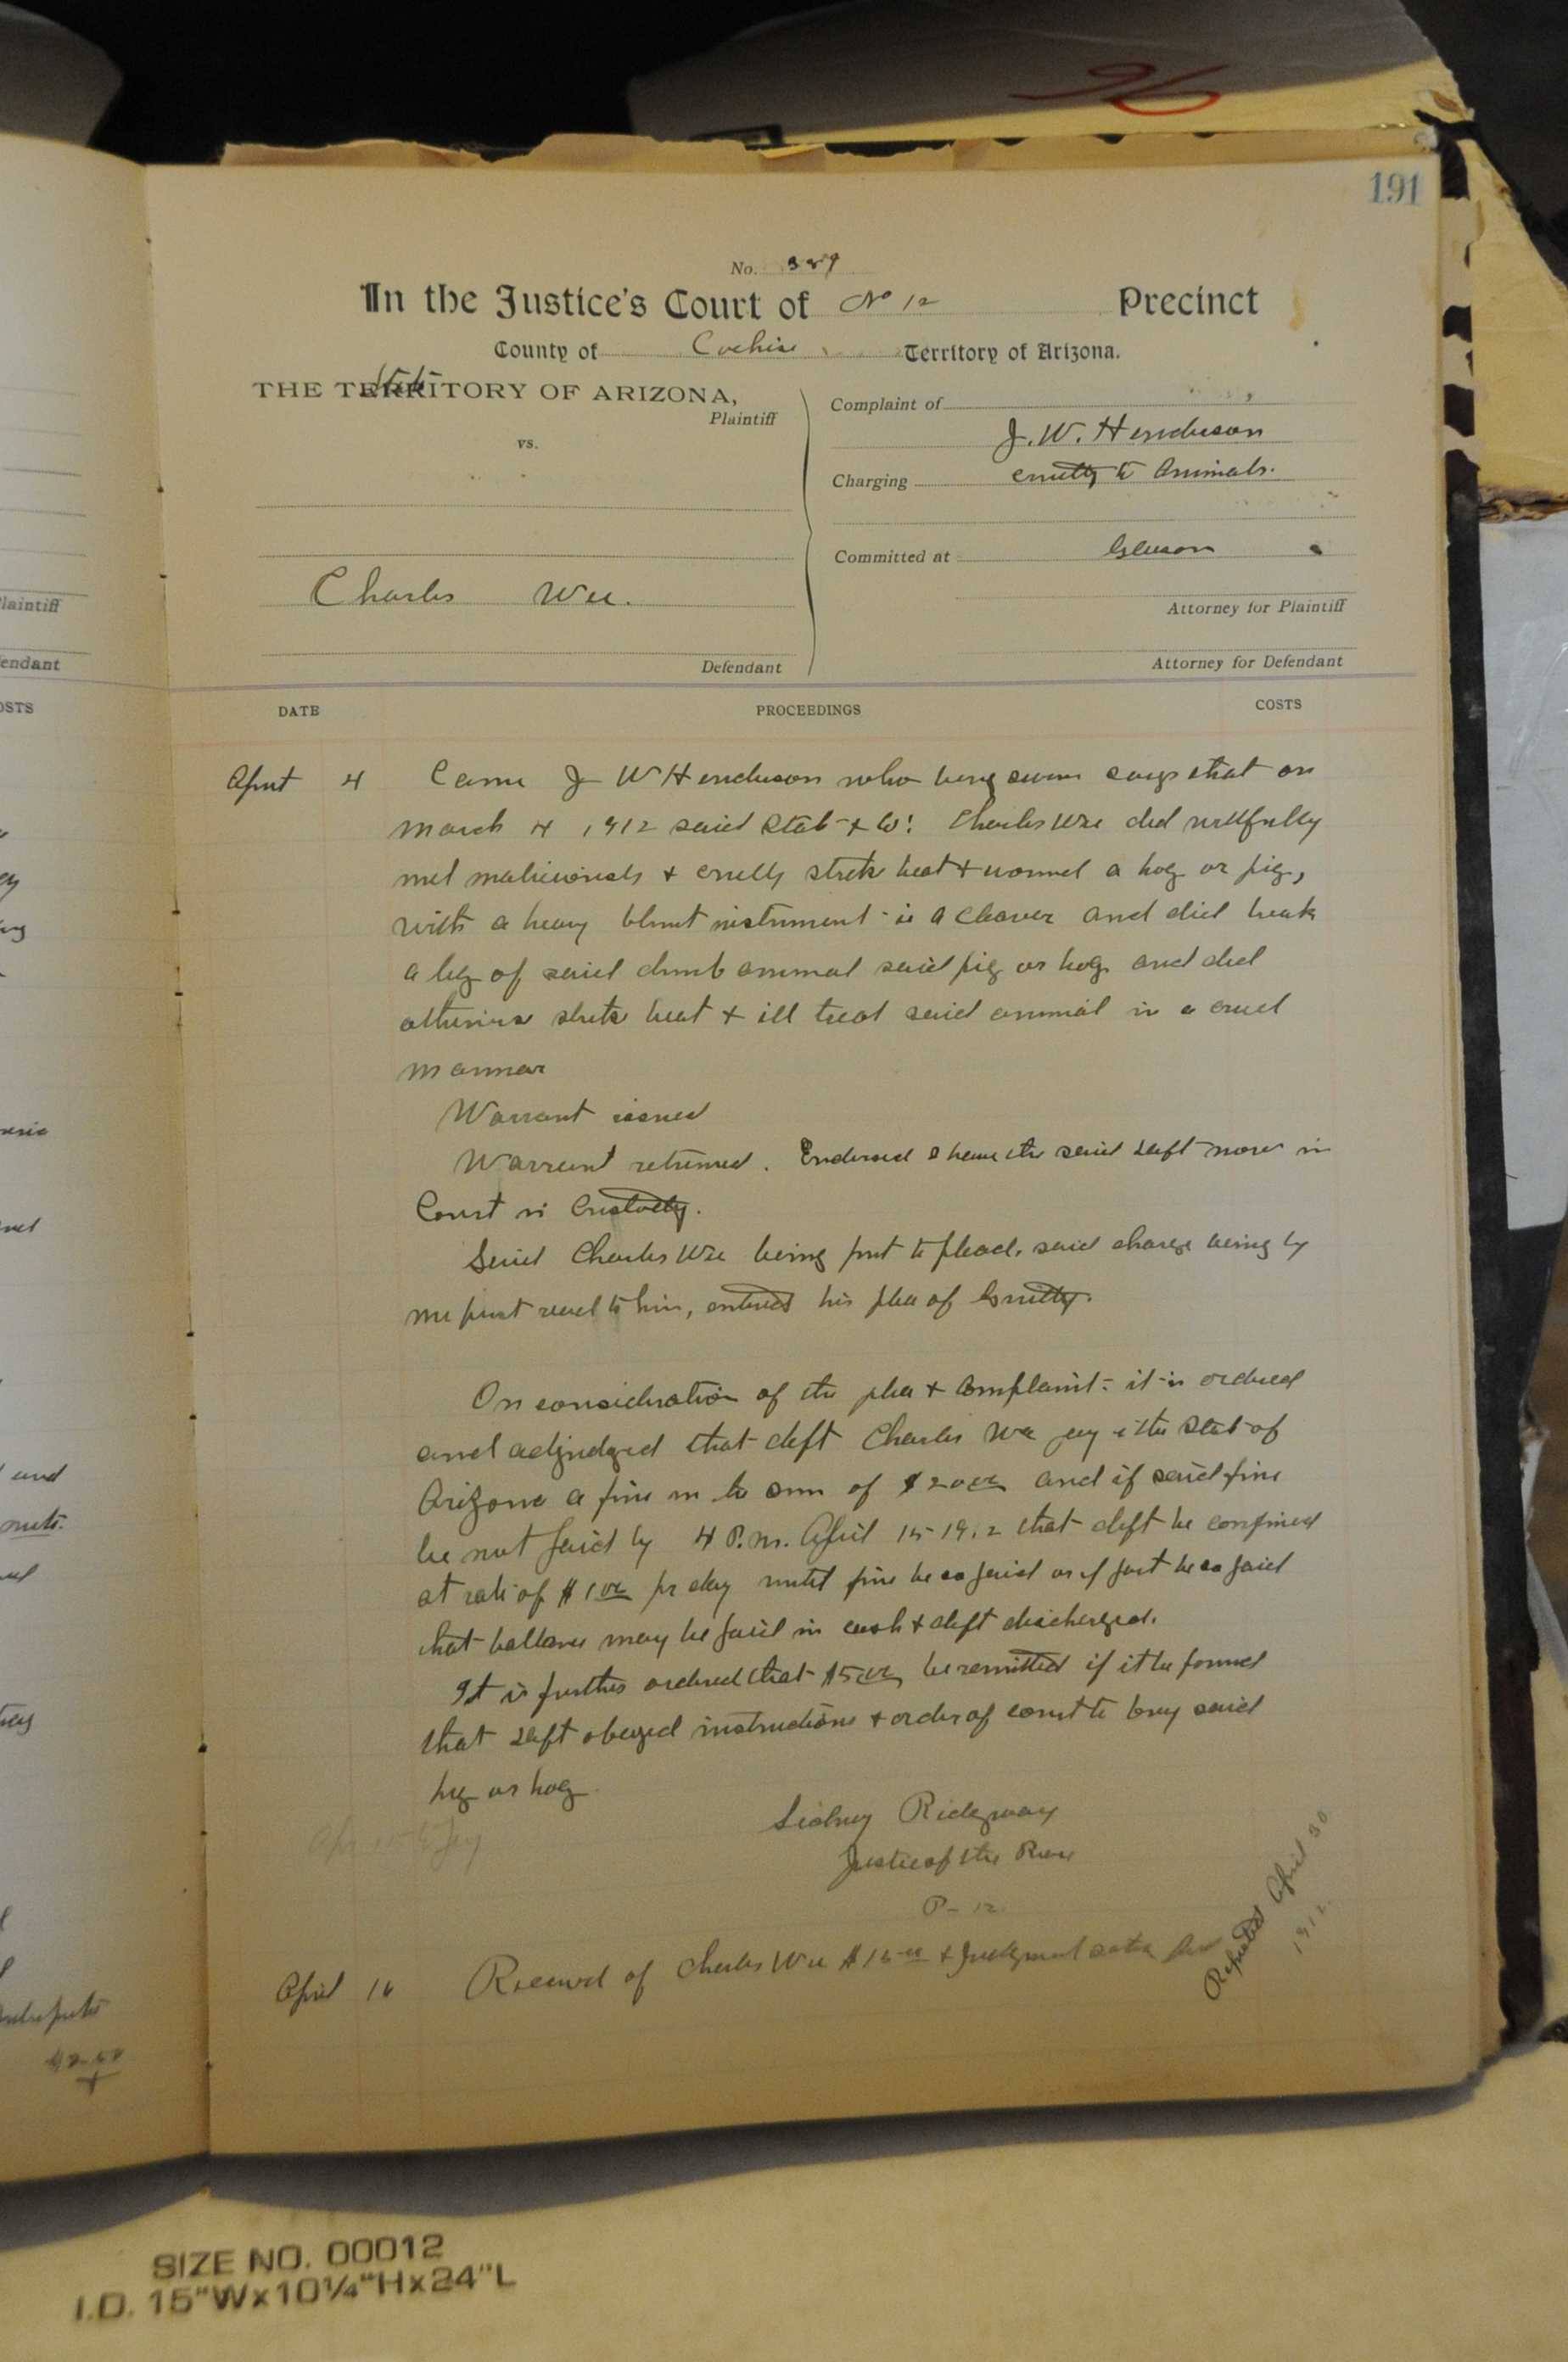 96
191
No. 389
In the Justice's Court of No 12 Precinct
County of Cochise Territory of Arizona.
State
THE TERRITORY OF ARIZONA,
Plaintiff
vs.
Charles Wee.
Defendant
Complaint of
J. W. Henderson
Charging cruelty to Animals.
Committed at Gleeson
Attorney for Plaintiff
Attorney for Defendant
DATE PROCEEDINGS COSTS
April 4 Came J W Henderson who being sworn says that on
March 4 1912 said State & Co: Charles Wee did willfully
and maliciously & cruelly strike beat & wound a hog or pig,
with a heavy blunt instrument - ie a Cleaver and did break
a leg of said dumb animal said pig or hog and did
otherwise strike beat & ill treat said animal in a cruel
manner
Warrant issued
Warrant returned. Endorsed I have the said deft now in
Court in Custody.
Said Charles Wee being put to plead, said charge being by
me first read to him, entered his plea of Guilty.
On consideration of the plea & Complaint - it is ordered
and adjudged that deft Charles Wee pay the State of
Arizona a fine in the sum of $20 00 and if said fine
be not paid by 4 P.M. April 15 1912 that deft be confined
at rate of $1 00 pr day until fine be so paid or if part be so paid
that ballance may be paid in cash & deft discharged.
It is further ordered that $5 00 be remitted if it be found
that deft obeyed instructions & order of court to bury said
pig or hog.
Sidney Ridgway
Justice of the Peace
P- 12
April 16 Received of Charles Wee $15 00 & Judgment
Reported April 30
1912
Plaintiff
endant
OSTS
and
42 50
SIZE NO. 00012
I.D. 15"Wx10¼"Hx24"L